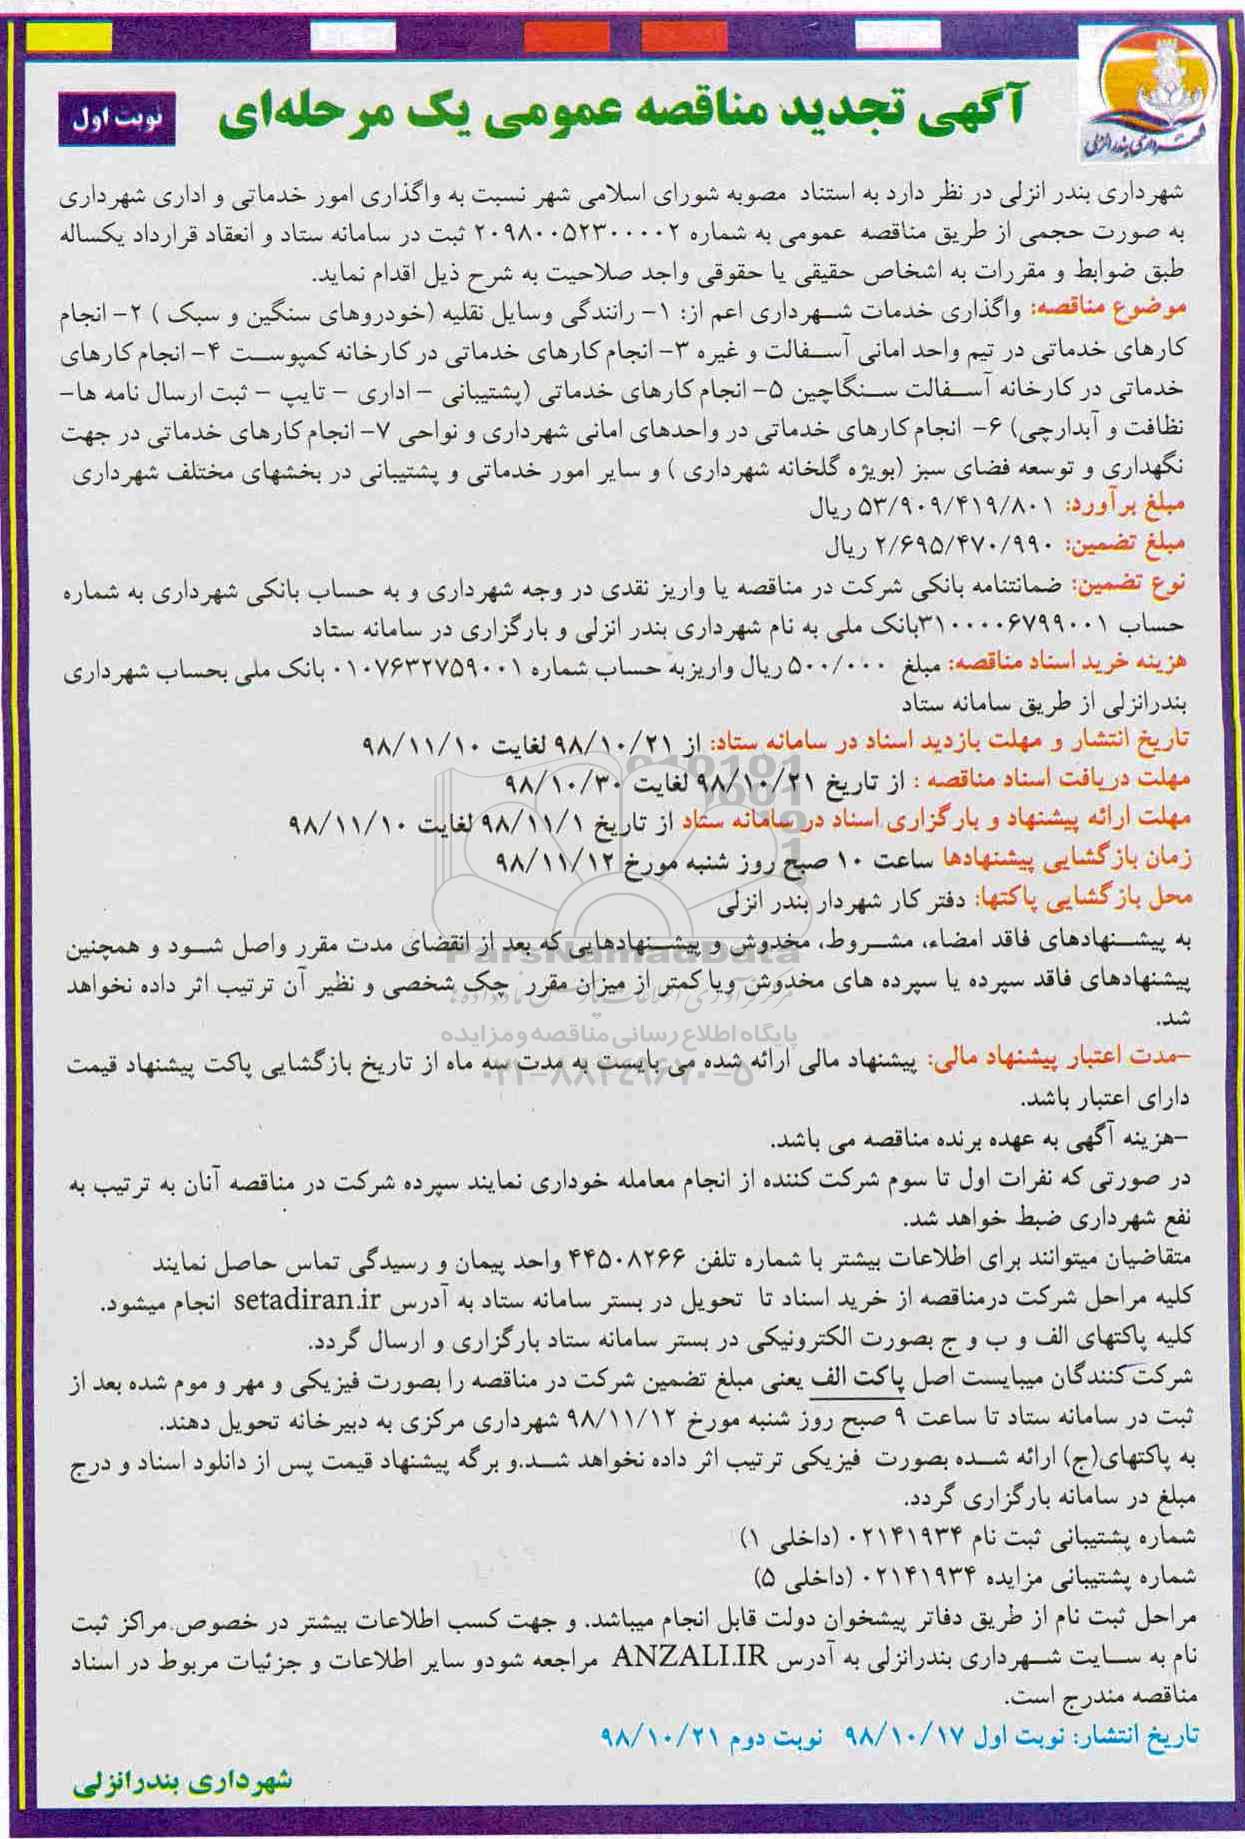 شهرداری بندر انزلی
آگهی تجدید مناقصه عمومی یک مرحله‌ای
نوبت اول
شهرداری بندر انزلی در نظر دارد به استناد مصوبه شورای اسلامی شهر نسبت به واگذاری امور خدماتی و اداری شهرداری
به صورت حجمی از طریق مناقصه عمومی به شماره ۲۰۹۸۰۰۵۲۳۰۰۰۰۲ ثبت در سامانه ستاد و انعقاد قرارداد یکساله
طبق ضوابط و مقررات به اشخاص حقیقی یا حقوقی واجد صلاحیت به شرح ذیل اقدام نماید.
موضوع مناقصه: واگذاری خدمات شهرداری اعم از: ۱- رانندگی وسایل نقلیه (خودروهای سنگین و سبک ) ۲- انجام
کارهای خدماتی در تیم واحد امانی آسفالت و غیره ۳- انجام کارهای خدماتی در کارخانه کمپوست ۴- انجام کارهای
خدماتی در کارخانه آسفالت سنگاچین ۵- انجام کارهای خدماتی (پشتیبانی - اداری - تایپ - ثبت ارسال نامه ها-
نظافت و آبدارچی) ۶- انجام کارهای خدماتی در واحدهای امانی شهرداری و نواحی ۷- انجام کارهای خدماتی در جهت
نگهداری و توسعه فضای سبز (بویژه گلخانه شهرداری ) و سایر امور خدماتی و پشتیبانی در بخشهای مختلف شهرداری
مبلغ برآورد: ۵۳/۹۰۹/۴۱۹/۸۰۱ ریال
مبلغ تضمین: ۲/۶۹۵/۴۷۰/۹۹۰ ریال
نوع تضمین: ضمانتنامه بانکی شرکت در مناقصه یا واریز نقدی در وجه شهرداری و به حساب بانکی شهرداری به شماره
حساب ۳۱۰۰۰۰۶۷۹۹۰۰۱بانک ملی به نام شهرداری بندر انزلی و بارگزاری در سامانه ستاد
هزینه خرید اسناد مناقصه: مبلغ ۵۰۰/۰۰۰ ریال واریزبه حساب شماره ۰۱۰۷۶۳۲۷۵۹۰۰۱ بانک ملی بحساب شهرداری
بندرانزلی از طریق سامانه ستاد
تاریخ انتشار و مهلت بازدید اسناد در سامانه ستاد: از ۹۸/۱۰/۲۱ لغایت ۹۸/۱۱/۱۰
مهلت دریافت اسناد مناقصه : از تاریخ ۹۸/۱۰/۲۱ لغایت ۹۸/۱۰/۳۰
مهلت ارائه پیشنهاد و بارگزاری اسناد در سامانه ستاد از تاریخ ۹۸/۱۱/۱ لغایت ۹۸/۱۱/۱۰
زمان بازگشایی پیشنهادها ساعت ۱۰ صبح روز شنبه مورخ ۹۸/۱۱/۱۲
محل بازگشایی پاکتها: دفتر کار شهردار بندر انزلی
به پیشنهادهای فاقد امضاء، مشروط، مخدوش و پیشنهادهایی که بعد از انقضای مدت مقرر واصل شود و همچنین
ParsNamadData
پیشنهادهای فاقد سپرده یا سپرده های مخدوش ویا کمتر از میزان مقرر چک شخصی و نظیر آن ترتیب اثر داده نخواهد
شد.
پایگاه اطلاع رسانی مناقصه و مزایده
-مدت اعتبار پیشنهاد مالی: پیشنهاد مالی ارائه شده می بایست به مدت سه ماه از تاریخ بازگشایی پاکت پیشنهاد قیمت
۰۲۱-۸۸۳۴۹۶۷۰-۵
دارای اعتبار باشد.
-هزینه آگهی به عهده برنده مناقصه می باشد.
در صورتی که نفرات اول تا سوم شرکت کننده از انجام معامله خوداری نمایند سپرده شرکت در مناقصه آنان به ترتیب به
نفع شهرداری ضبط خواهد شد.
متقاضیان میتوانند برای اطلاعات بیشتر با شماره تلفن ۴۴۵۰۸۲۶۶ واحد پیمان و رسیدگی تماس حاصل نمایند
کلیه مراحل شرکت درمناقصه از خرید اسناد تا تحویل در بستر سامانه ستاد به آدرس setadiran.ir انجام میشود.
کلیه پاکتهای الف و ب و ج بصورت الکترونیکی در بستر سامانه ستاد بارگزاری و ارسال گردد.
شرکت کنندگان میبایست اصل پاکت الف یعنی مبلغ تضمین شرکت در مناقصه را بصورت فیزیکی و مهر و موم شده بعد از
ثبت در سامانه ستاد تا ساعت ۹ صبح روز شنبه مورخ ۹۸/۱۱/۱۲ شهرداری مرکزی به دبیرخانه تحویل دهند.
به پاکتهای(ج) ارائه شده بصورت فیزیکی ترتیب اثر داده نخواهد شد.و برگه پیشنهاد قیمت پس از دانلود اسناد و درج
مبلغ در سامانه بارگزاری گردد.
شماره پشتیبانی ثبت نام ۰۲۱۴۱۹۳۴ (داخلی ۱)
شماره پشتیبانی مزایده ۰۲۱۴۱۹۳۴ (داخلی ۵)
مراحل ثبت نام از طریق دفاتر پیشخوان دولت قابل انجام میباشد. و جهت کسب اطلاعات بیشتر در خصوص مراکز ثبت
نام به سایت شهرداری بندرانزلی به آدرس ANZALI.IR مراجعه شودو سایر اطلاعات و جزئیات مربوط در اسناد
مناقصه مندرج است.
تاریخ انتشار: نوبت اول ۹۸/۱۰/۱۷ نوبت دوم ۹۸/۱۰/۲۱
شهرداری بندرانزلی